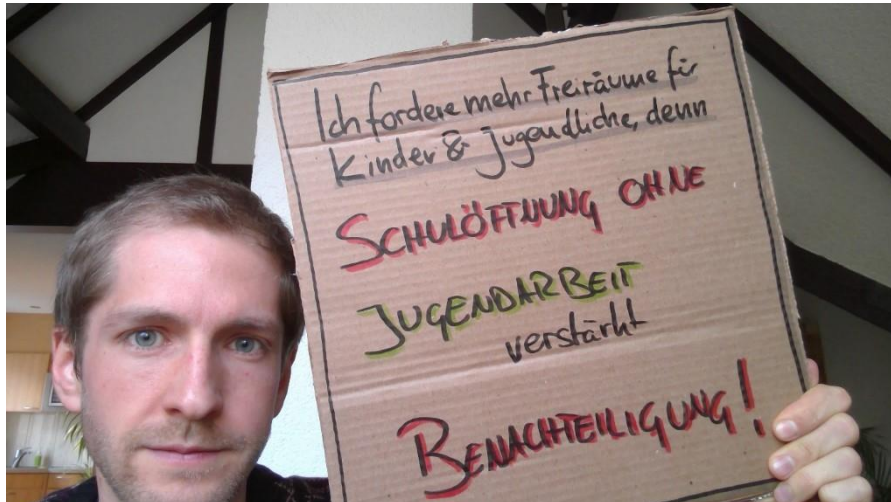 Ich fordere mehr Freiräume für
Kinder & Jugendliche, denn
SCHULÖFFNUNG OHNE
JUGENDARBEIT
verstärkt
BENACHTEILIGUNG!